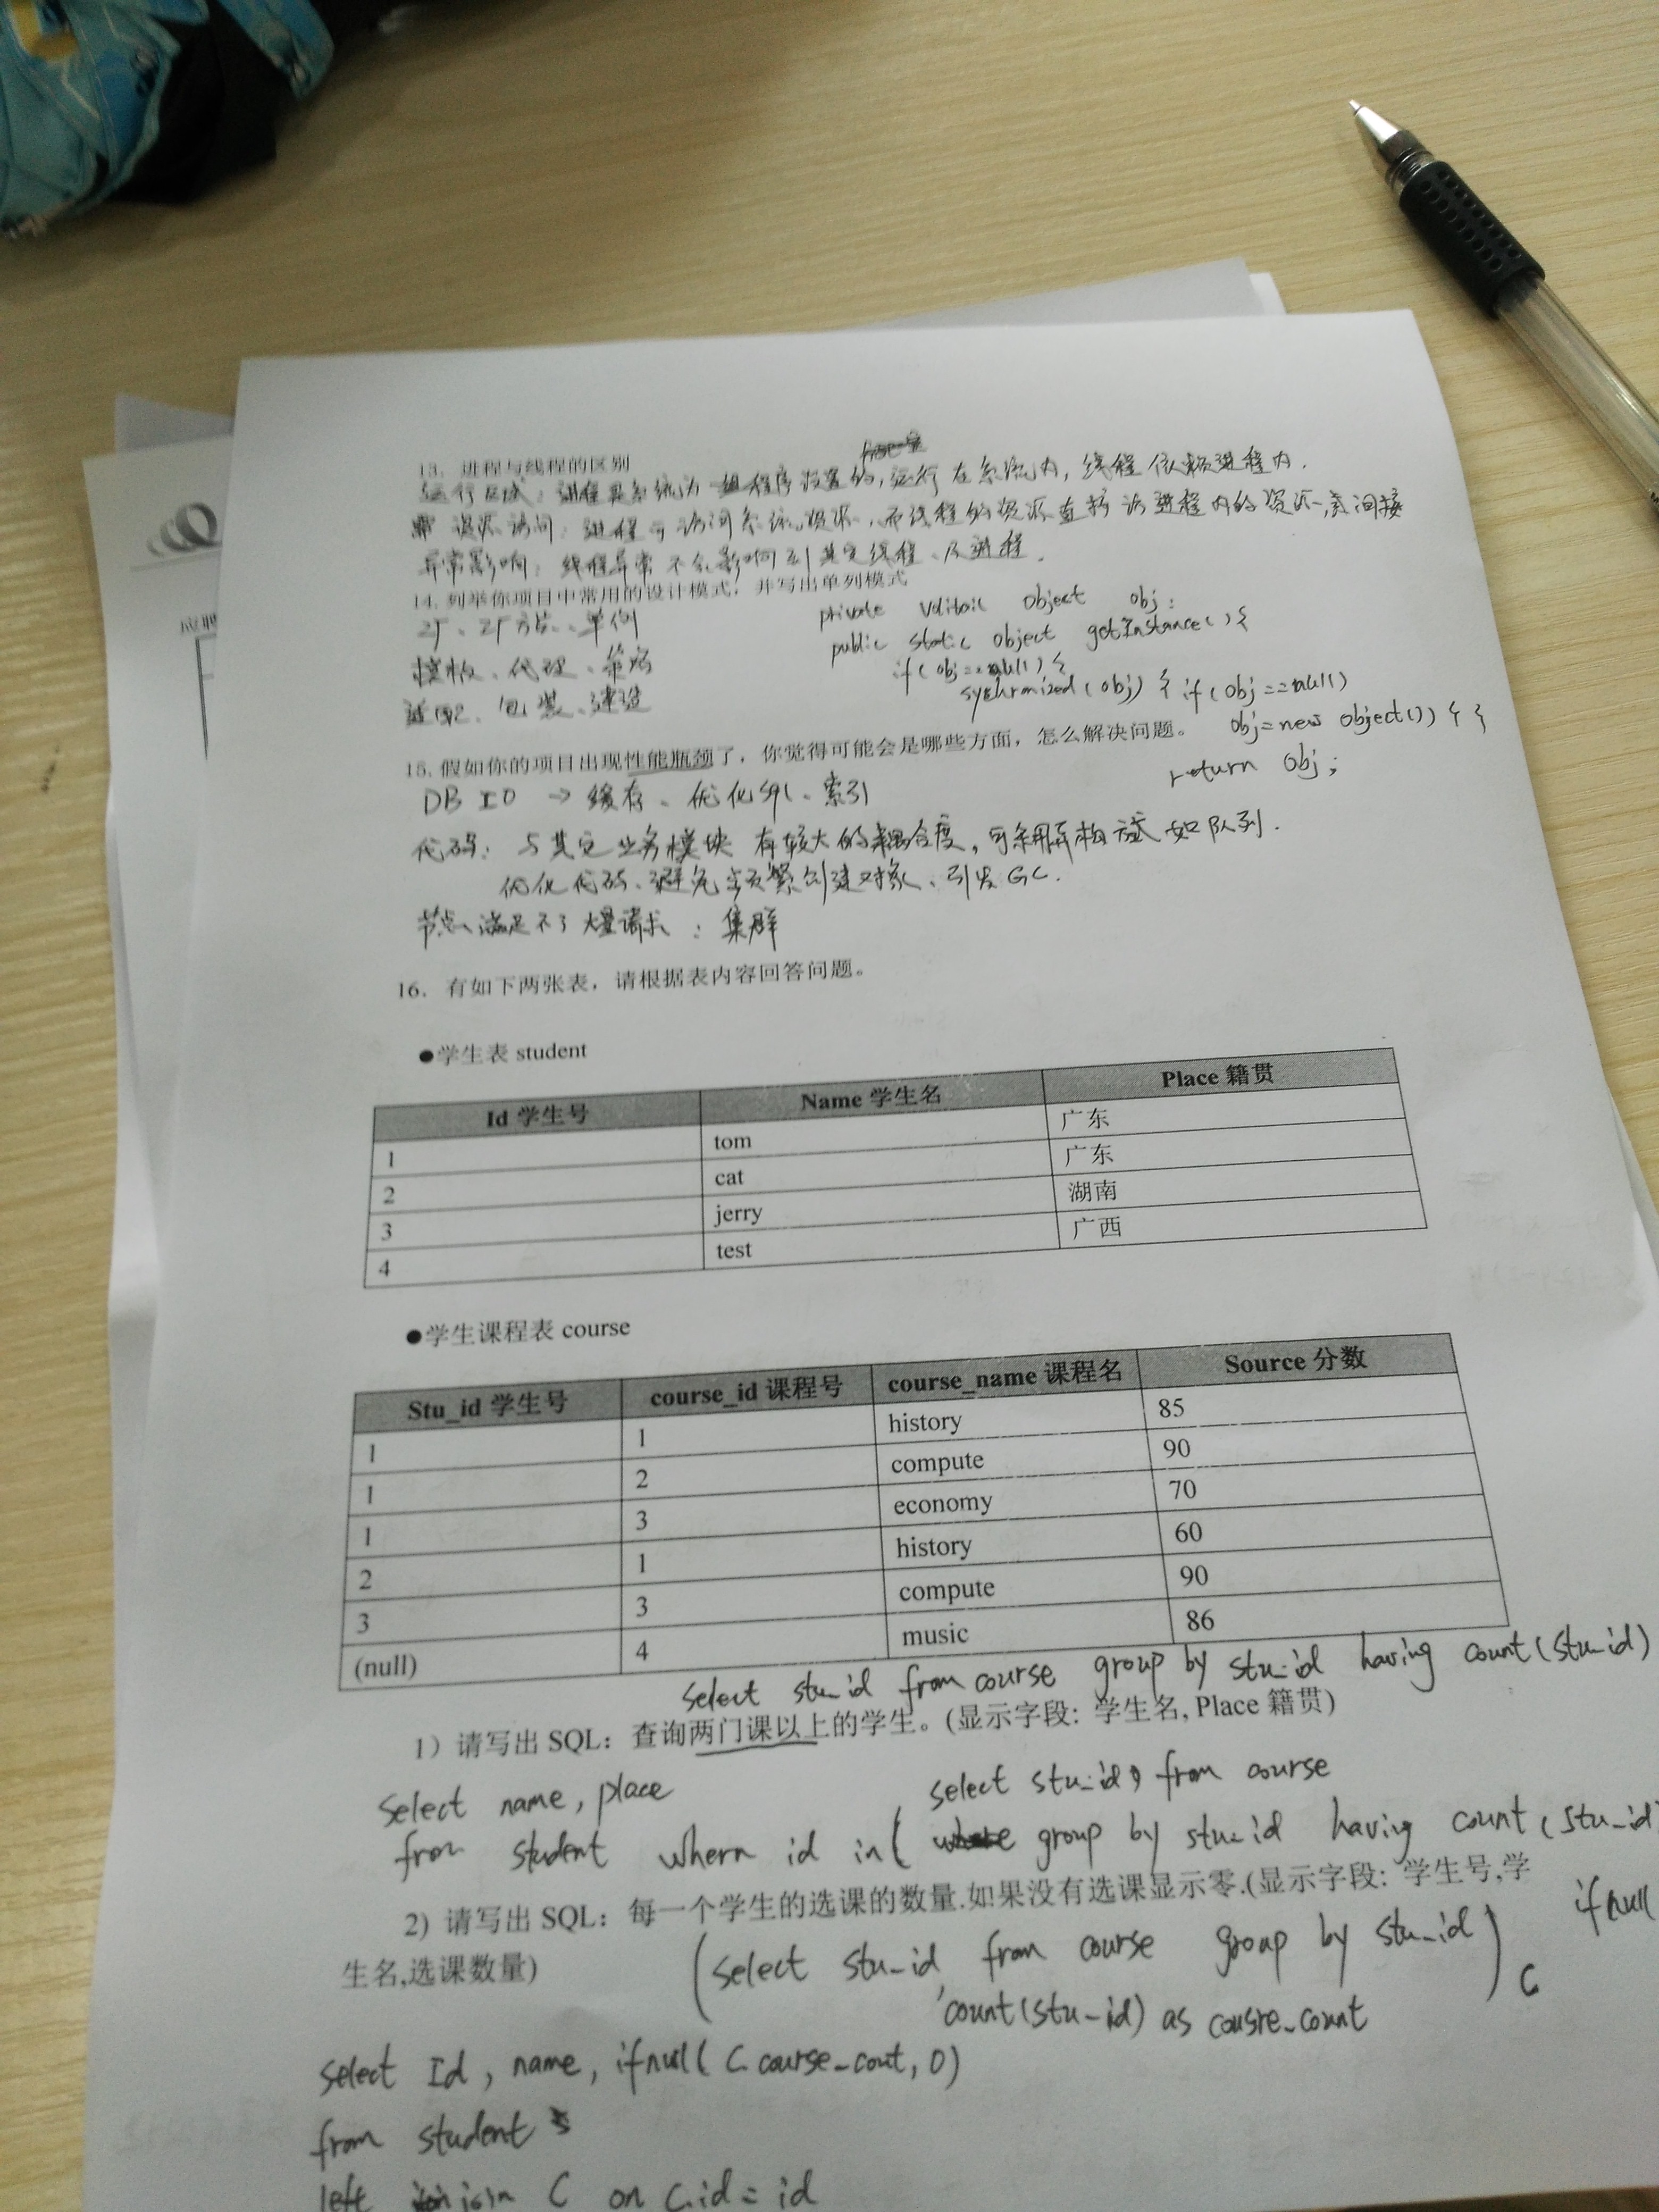 应聘
13. 进程与线程的区别
运行区域：进程是系统为一组程序设置的，运行在系统内，线程依赖进程内.
资源访问：进程可访问系统资源，而线程的资源直接访进程内的资源，间接
异常影响：线程异常不会影响到其它线程、及进程.
14. 列举你项目中常用的设计模式，并写出单列模式
工厂、工厂方法、单例
模板、代理、策略
适配、包装、建造
private volitail object obj;
public static object getInstance(){
if(obj==null){
sychronized(obj) { if(obj==null)
obj=new object()) } }
return obj;
15. 假如你的项目出现性能瓶颈了，你觉得可能会是哪些方面，怎么解决问题。
DB IO → 缓存、优化sql、索引
代码：与其它业务模块有较大的耦合度，可采用 如队列.
优化代码、避免频繁创建对象、引发GC.
节点满足不了大量请求：集群
16. 有如下两张表，请根据表内容回答问题。
●学生表 student
Id 学生号 Name 学生名 Place 籍贯
1 tom 广东
2 cat 广东
3 jerry 湖南
4 test 广西
●学生课程表 course
Stu_id 学生号 course_id 课程号 course_name 课程名 Source 分数
1 1 history 85
1 2 compute 90
1 3 economy 70
2 1 history 60
3 3 compute 90
(null) 4 music 86
select stu_id from course group by stu_id having count(stu_id)
1）请写出 SQL：查询两门课以上的学生。(显示字段: 学生名, Place 籍贯)
select name, place
select stu_id, from course
from student whern id in( group by stu_id having count(stu_id
2) 请写出 SQL：每一个学生的选课的数量.如果没有选课显示零.(显示字段: 学生号,学
生名,选课数量)
ifnull
(select stu_id from course group by stu_id) C
,count(stu_id) as cousre_count
select Id, name, ifnull(C.course_cout, 0)
from student s
left join C on C.id = id